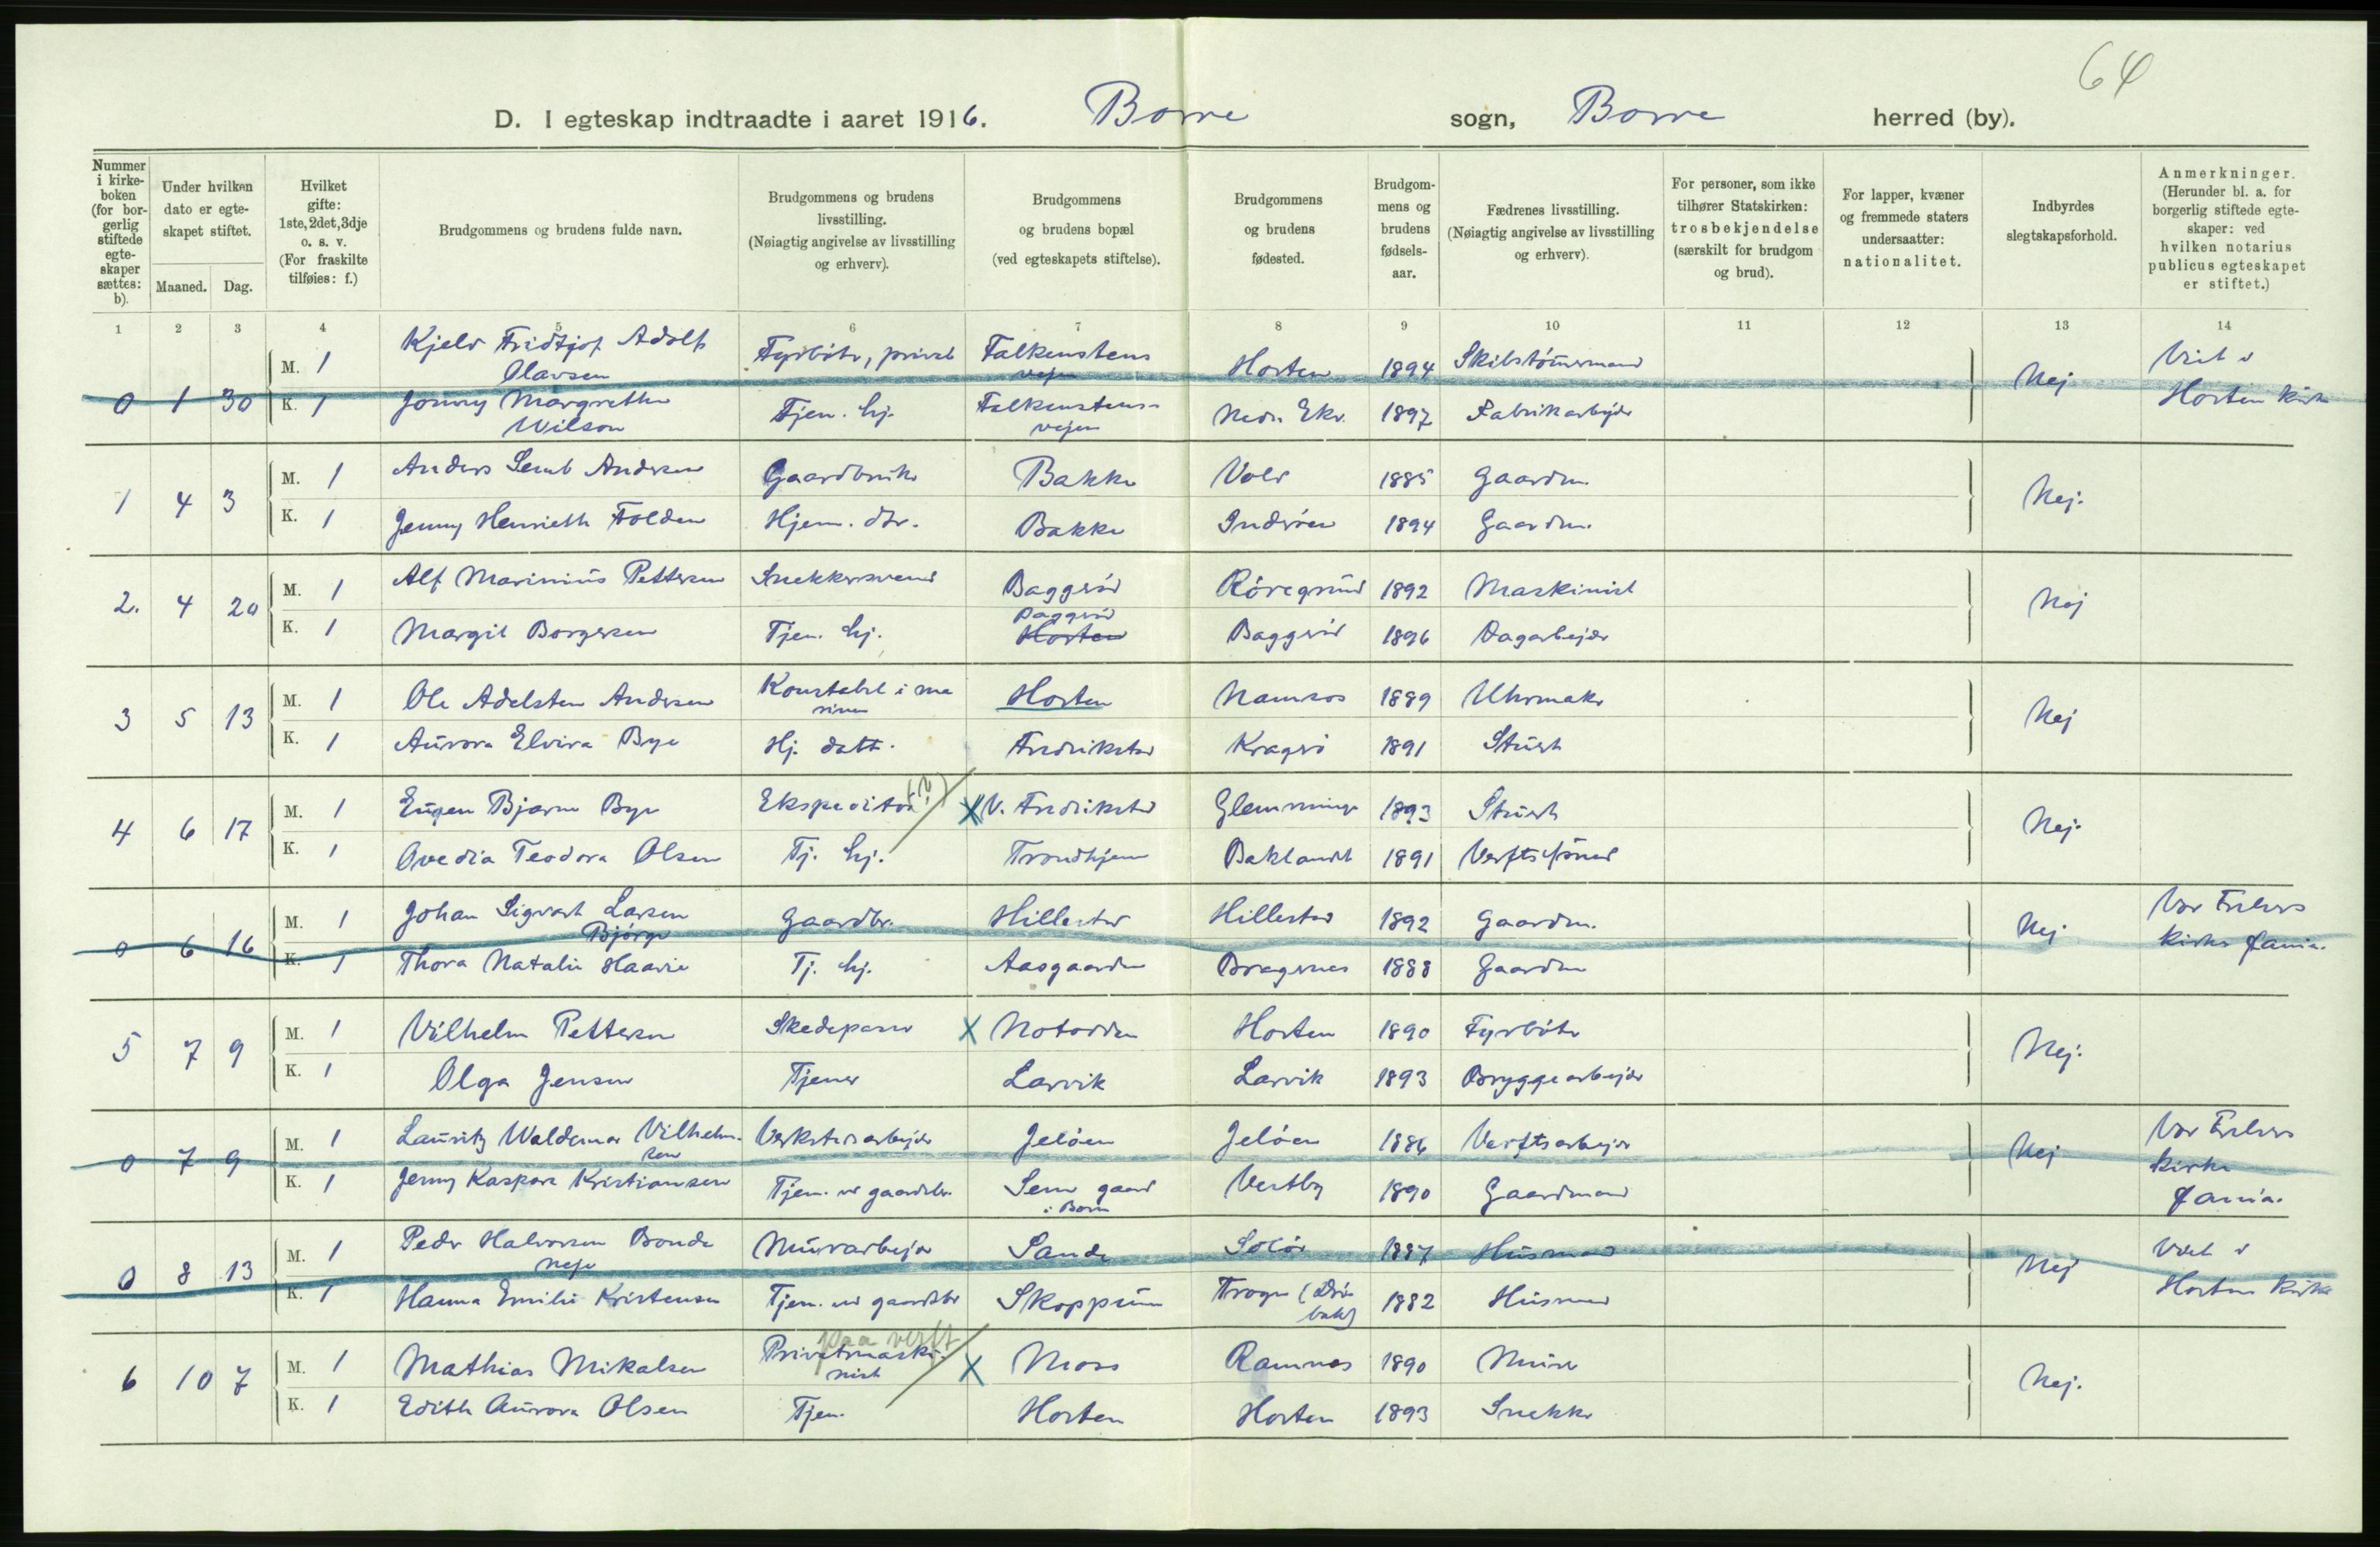 64
D. I egteskap indtraadte i aaret 1916. Borre sogn, Borre herred (by).
Nummer i kirke-boken (for bor-gerlig stiftede egte-skaper sættes: b).
Under hvilken dato er egte-skapet stiftet.
Maaned. Dag.
Hvilket gifte: 1ste, 2det, 3dje o. s. v. (For fraskilte tilføies: f.)
Brudgommens og brudens fulde navn.
Brudgommens og brudens livsstilling. (Nøiagtig angivelse av livsstilling og erhverv).
Brudgommens og brudens bopæl (ved egteskapets stiftelse).
Brudgommens og brudens fødested.
Brudgom-mens og brudens fødsels-aar.
Fædrenes livsstilling. (Nøiagtig angivelse av livsstilling og erhverv).
For personer, som ikke tilhører Statskirken: trosbekjendelse (særskilt for brudgom og brud).
For lapper, kvæner og fremmede staters undersaatter: nationalitet.
Indbyrdes slegtskapsforhold.
Anmerkninger. (Herunder bl. a. for borgerlig stiftede egte-skaper: ved hvilken notarius publicus egteskapet er stiftet.)
1 2 3 4 5 6 7 8 9 10 11 12 13 14
0 1 30 M. 1 Kjelv Fridtjof Adolf Olavsen Fyrbøter, privat Falkenstens vejen Horten 1894 Skibstømmermand Nej Viet i
K. 1 Jonny Margrethe Wilson Tjen. hj. Falkenstens-vejen Nedr. Ekr. 1897 Fabrikarbejder Horten Kirke
1 4 3 M. 1 Anders Semb Andersen Gaardbruker Bakke Vold 1885 Gaardm. Nej.
K. 1 Jenny Henriette Folden Hjem. dtr. Bakke Inderøen 1894 Gaardm.
2. 4 20 M. 1 Alf Marinius Pettersen Snekkersvend Baggerød 1892 Maskinist Nej
K. 1 Margit Borgersen Tjen. hj. Baggerød Horten Baggerød 1896 Dagarbejder
3 5 13 M. 1 Ole Adelsten Andersen Konstabel i marinen Horten Namsos 1889 Uhrmaker Nej
K. 1 Aurora Elvira Bye Hj. datt. Fredrikstad Kragerø 1891 Stuert
4 6 17 M. 1 Eugen Bjarne Bye Ekspeditør (?) X V. Fredrikstad Glemminge 1893 Stuert Nej.
K. 1 Ovedia Teodora Olsen Tj. hj. Trondhjem Baklandet 1891
0 6 16 M. 1 Johan Sigvart Larsen Bjørge Gaardbr. Hillestad Hillestad 1892 Gaardm. Nej. Vor Frelsers
K. 1 Thora Natalie Haavie Tj. hj. Aasgaarden Bragernes 1888 Gaardm Kirke Xania.
5 7 9 M. 1 Vilhelm Pettersen Skedepasser X Notodden Horten 1890 Fyrbøter Nej.
K. 1 Olga Jensen Tjener Larvik Larvik 1893 Bryggearbejder
0 7 9 M. 1 Lauritz Waldemar Vilhelmsen Verkstedsarbejder Jeløen Jeløen 1886 Verftsarbejder Nej Vor Frelsers
K. 1 Jenny Kaspara Kristiansen Tjen. ved gaardsbr. Sem gaard i Borre Vestby 1890 Gaardmand Kirke Xania.
0 8 13 M. 1 Peder Halvorsen Bonde Murarbejder Sande Solør 1887 Husmand Nej Viet i
K. 1 Hanna Emilie Kristensen Tjen. ved gaardsbr Skoppum Frogn (Drøbak) 1882 Husmand Horten Kirke
6 10 7 M. 1 Mathias Mikalsen Privatmaskinist paa verft X Moss Ramnes 1890 Murer Nej.
K. 1 Edith Aurora Olsen Tjen. Horten Horten 1893 Snekker